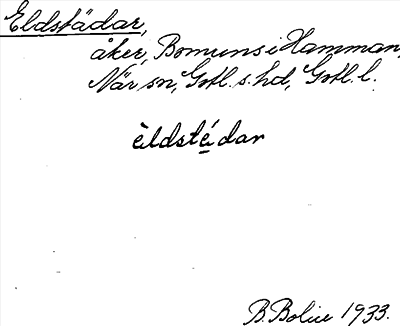 Eldstädar,
åker, Bomunds i Hamman,
När sn, Gotl. s. hd, Gotl. l.
èldsté̱dar
B. Bolin 1933.